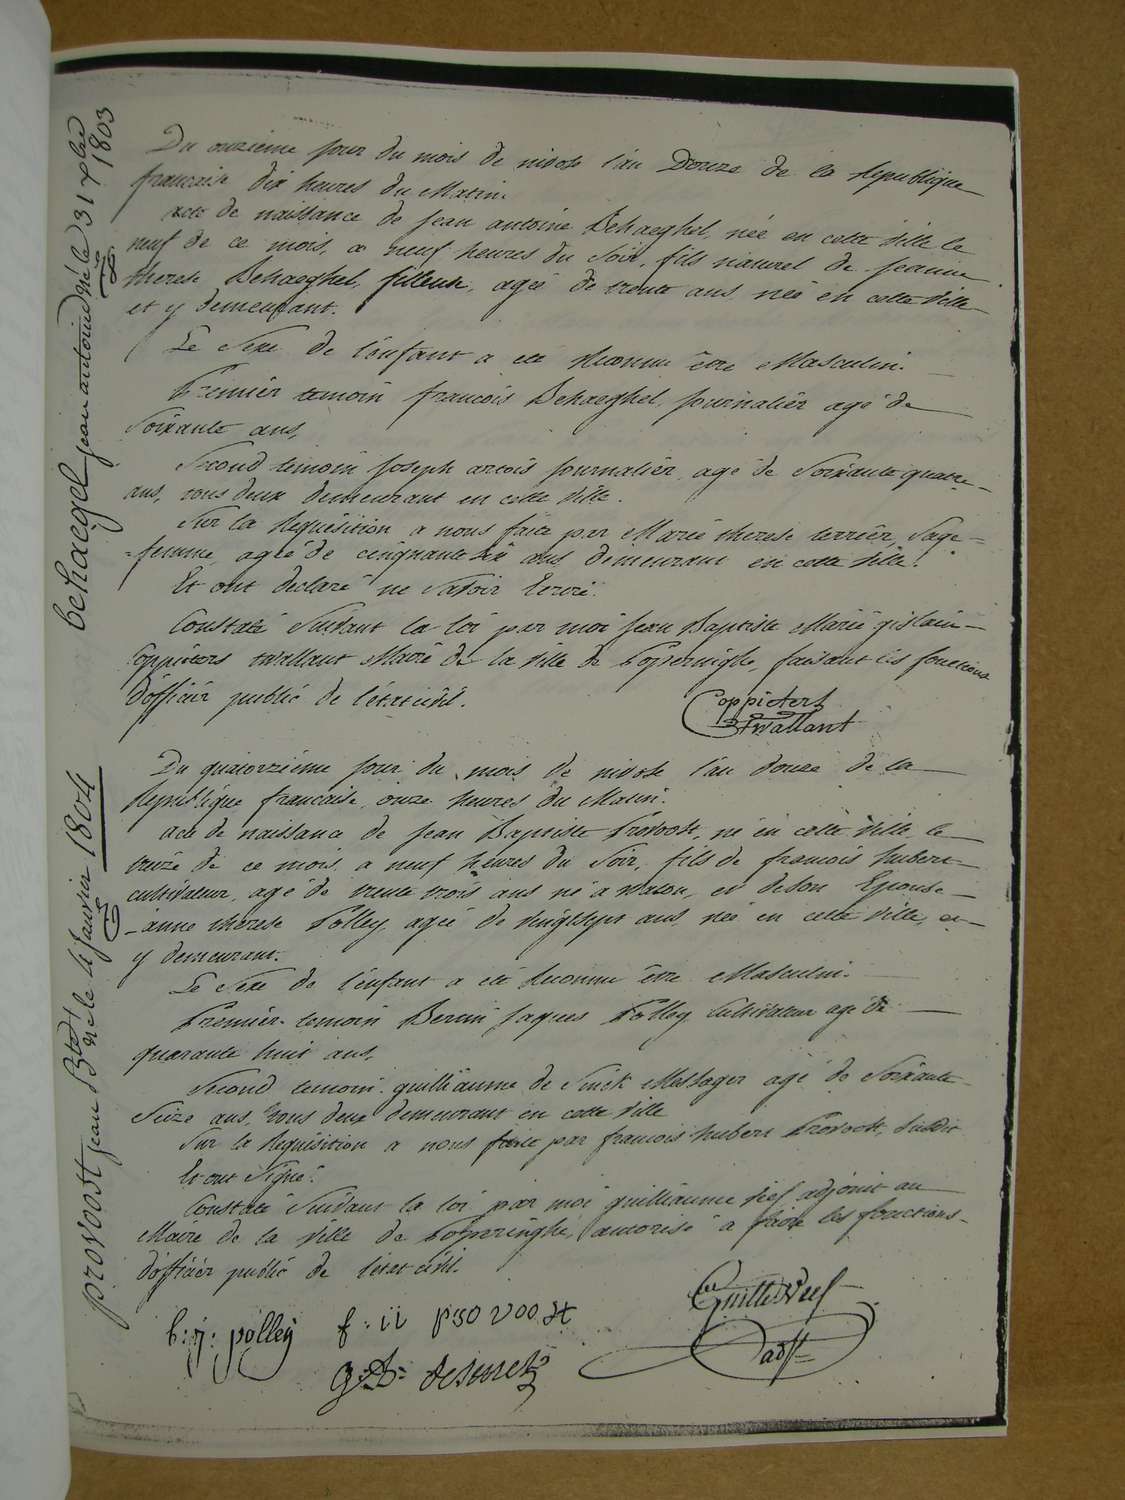 behaegel jean antoine né le 31 xbre 1803
Du onzieme jour du mois de nivose l'an Douze de la Republique
francaise dix heures du Matin.
acte de naissance de jean antoine Behaeghel, née en cette ville le
neuf de ce mois, a neuf heures du Soir, fils naturel de jeanne
therese Behaeghel, fileuse, agée de trente ans née en cette ville
et y demeurant.
Le Sexe de l'enfant a été Reconnu être Masculin.
Premier temoin francois Behaeghel journalier agé de
Soixante ans,
Second temoin joseph artois journalier, agé de Soixante quatre
ans, tous deux demeurant en cette ville.
Sur la Requisition a nous faite par Marie therese terrier Sage=
=femme, agée de cinquante six ans demeurant en cette ville.
Et ont declaré ne Savoir Ecrire.
Constaté Suivant la loi par moi jean Baptiste Marie gislain
Coppieters twallant Maire de la ville de Poperinghe, faisant les fonctions
d'officier public de l'état civil.
Coppieters
twallant
provoost jean Bte né le 4 janvier 1804
Du quatorzieme jour du mois de nivose l'an douze de la
Republique francaise onze heures du Matin.
acte de naissance de jean Baptiste Provoost, né en cette ville le
treize de ce mois a neuf heures du Soir, fils de francois hubert
cultivateur, agé de trente trois ans né a watou, et de son Epouse
anne therese Polley agée de vingt sept ans, née en cette ville, et
y demeurant.
Le Sexe de l'enfant a été Reconnu être Masculin.
Premier temoin Bernr jaques Polley Cultivateur agé de
quarante huit ans,
Second temoin guilliaume de Smet Messager agé de Soixante
Seize ans, tous deux demeurant en cette ville
Sur la Requisition a nous faite par francois hubert Provoost, Susdit
Et ont Signé.
Constaté Suivant la loi par moi guilliaume vief adjoint au
Maire de la ville de Poperinghe, autorisé a faire les fonctions
d'officier public de l'état civil.
b: j: polley f: h provoost
Guille Vief
adjt
g: D: desmet